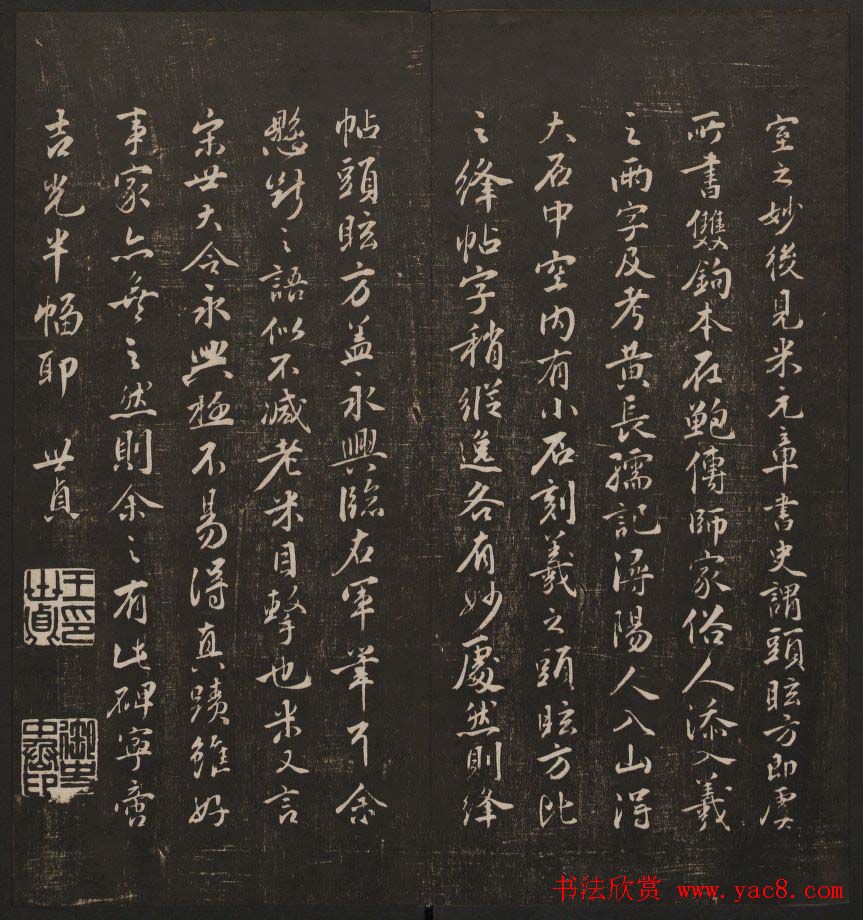 室之妙後見米元章書史謂頭眩方即虞
所書雙鉤本在鮑傳師家俗人添入羲
之兩字及考黃長孺記潯陽人入山得
大石中空內有小石刻羲之頭眩方比
之絳帖字稍縱逸各有妙處然則絳
帖頭眩方盖永興臨右軍筆耳余
懸斷之語似不減老米目擊也米又言
宋世大令永興極不易得真蹟雖好
事家亦無之然則余之有此碑寧啻
吉光半幅耶 世貞
王世貞印
御史中丞印
书法欣赏 www.yac8.com